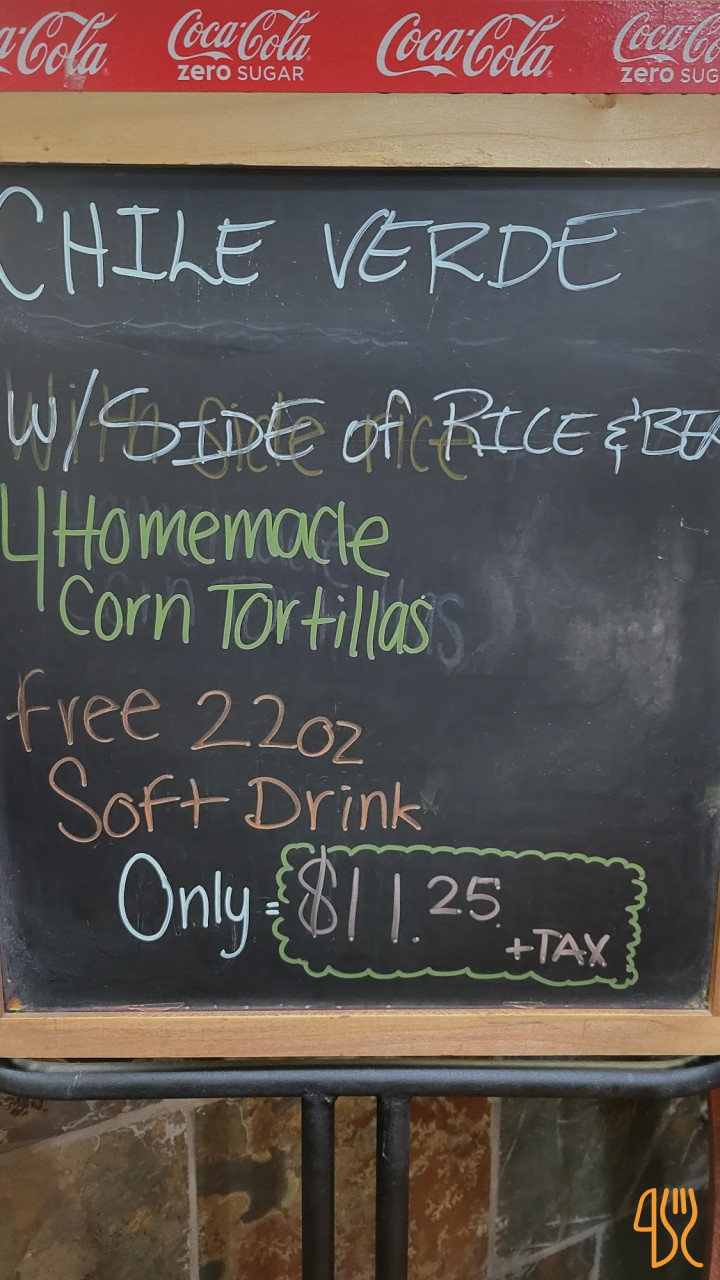 Coca-Cola Coca-Cola zero SUGAR Coca-Cola Coca-Co zero SUG
CHILE VERDE
W/ SIDE of RICE & BEA
4 Homemade
Corn Tortillas
free 22oz
Soft Drink
Only = $11.25
+TAX